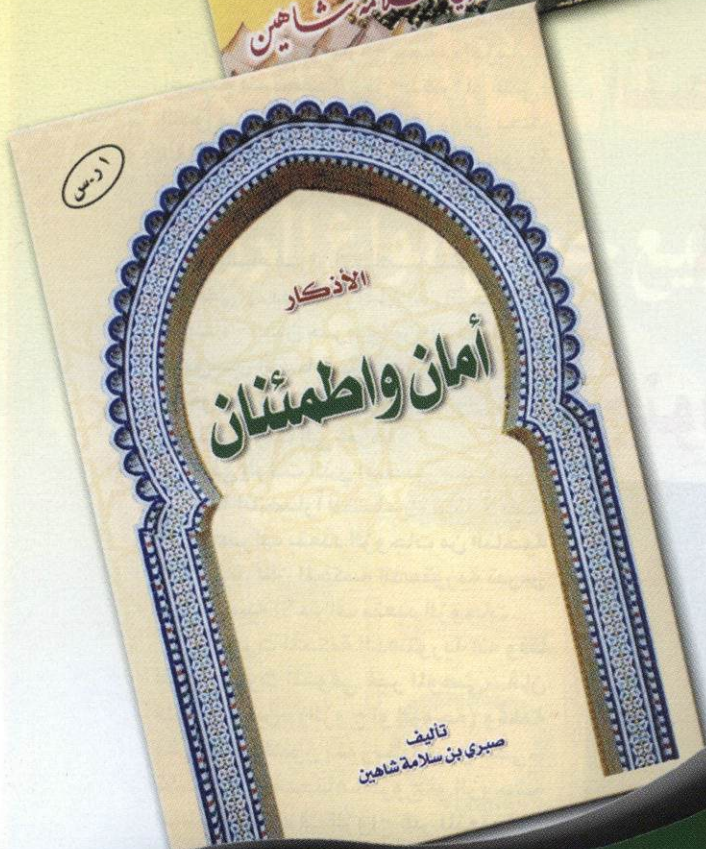 سلامة شاهين
١ ر.س
الأذكار
أمان واطمئنان
تأليف
صبري بن سلامة شاهين